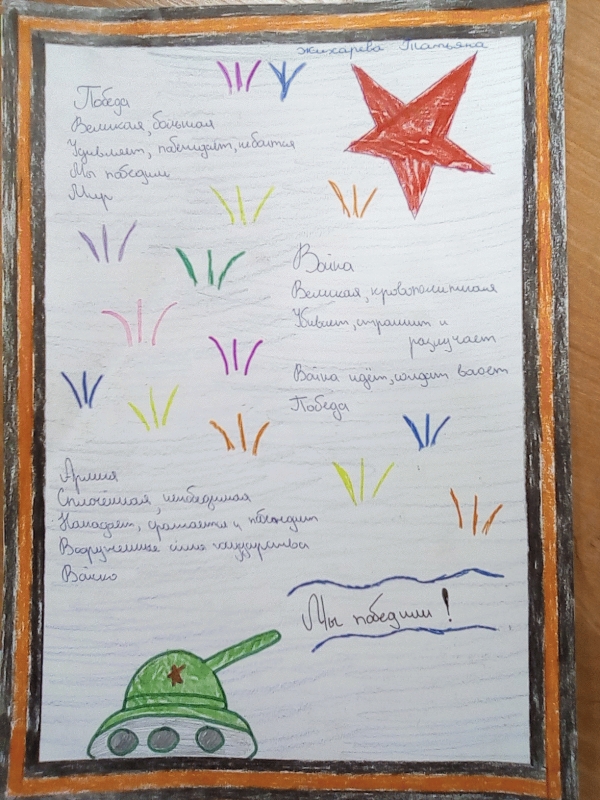 Жихарева Татьяна
Победа
Великая, большая
Удивляет, побеждает, не боится
Мы победили
Мир
Война
Великая, кровопролитная
Убивает, страшит и
разлучает
Война идёт, солдат воюет
Победа
Армия
Сплочённая, непобедимая
Нападает, сражается и побеждает
Вооружённые силы государства
Войско
Мы победили!